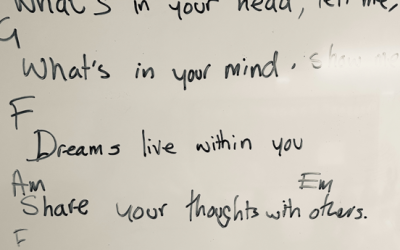 What's in your head, tell me,
G
What's in your mind.
F
Dreams live within you
Am Em
Share your thoughts with others.
F